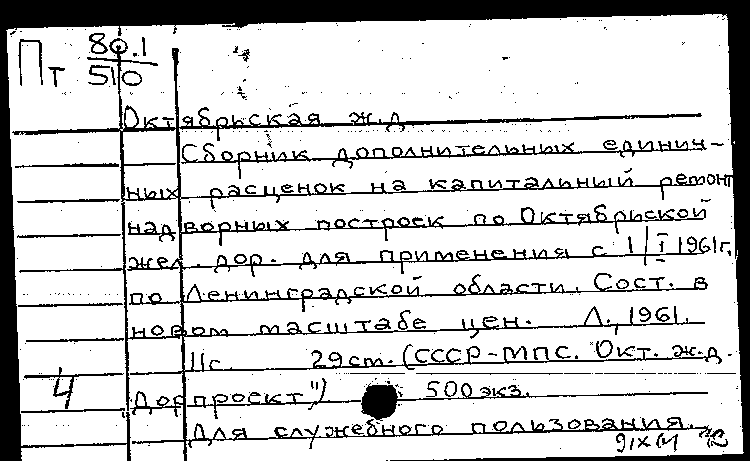 Пт 80.1
510
Октябрьская ж.д.
Сборник дополнительных единич-
ных расценок на капитальный ремонт
надворных построек по Октябрьской
жел. дор. для применения с 1/I 1961г.
по Ленинградской области. Сост. в
новом масштабе цен. Л., 1961.
11с. 29см. (СССР-МПС. Окт. ж.д.
4 "Дорпроект") 500 экз.
Для служебного пользования.